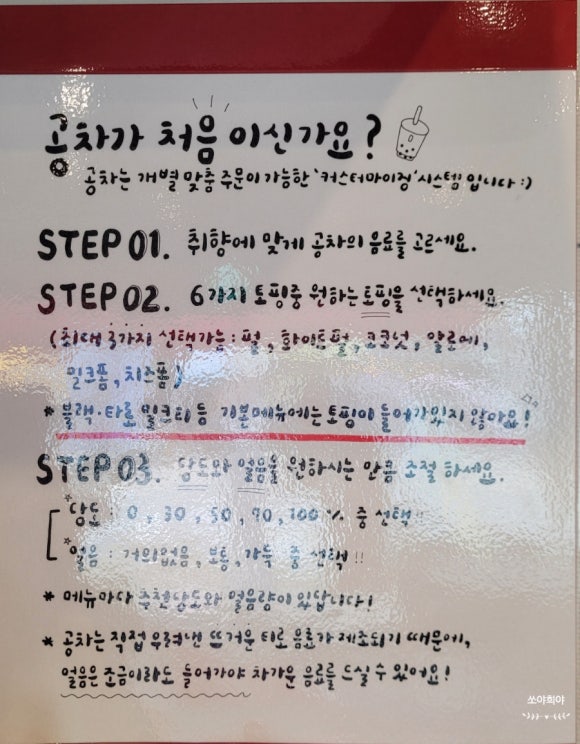 공차가 처음이신가요?
공차는 개별 맞춤 주문이 가능한 '커스터마이징' 시스템입니다 :)
STEP 01. 취향에 맞게 공차의 음료를 고르세요.
STEP 02. 6가지 토핑중 원하는 토핑을 선택하세요.
(최대 3가지 선택가능 : 펄, 화이트펄, 코코넛, 알로에,
밀크폼, 치즈폼)
* 블랙·타로 밀크티 등 기본메뉴에는 토핑이 들어가있지 않아요!
STEP 03. 당도와 얼음을 원하시는 만큼 조절 하세요.
당도 : 0, 30, 50, 70, 100 % 중 선택!!
얼음 : 거의없음, 보통, 가득 중 선택!!
* 메뉴마다 추천당도와 얼음량이 있답니다!
* 공차는 직접 우려낸 뜨거운 티로 음료가 제조되기 때문에,
얼음은 조금이라도 들어가야 차가운 음료를 드실 수 있어요!
쏘야희야